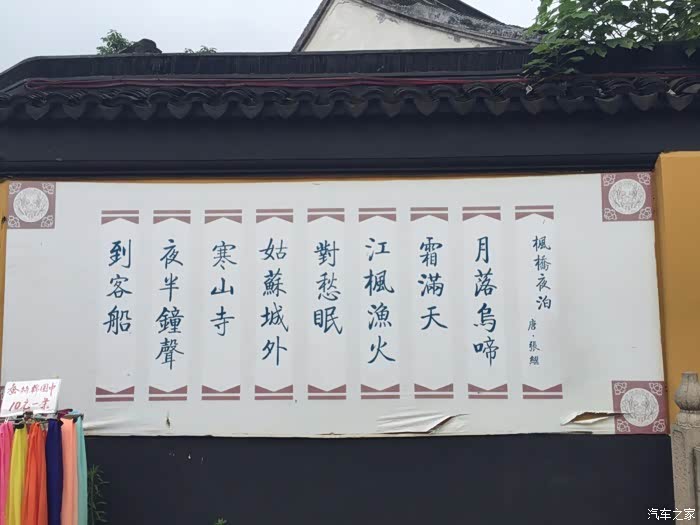 楓橋夜泊
唐·張繼
月落烏啼
霜滿天
江楓漁火
對愁眠
姑蘇城外
寒山寺
夜半鐘聲
到客船
10元一条
汽车之家